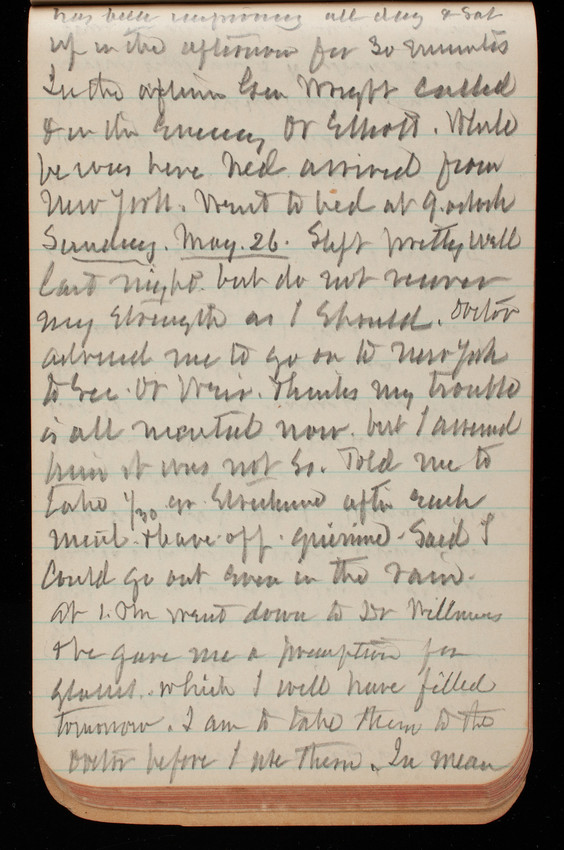 has been improving all day & sat
up in the afternoon for 30 minutes
In the afternoon Gen Wright called
& in the Evening Dr Elliott. While
he was here Ned arrived from
New York. Went to bed at 9. oclock
Sunday. May. 26. Slept pretty well
last night. but do not recover
my Strength as I Should. Doctor
advised me to go on to New York
to See. Dr Weir. thinks my trouble
is all mental now. but I assured
him it was not So. Told me to
take 1/30 gr Strichnine after each
meal. & leave. off. quinine. Said I
Could go out even in the rain.
at 1. Pm went down to Dr Willmers
& he gave me a prescription for
glasses. which I will have filled
tomorrow. I am to take them to the
Doctor before I use them. In mean